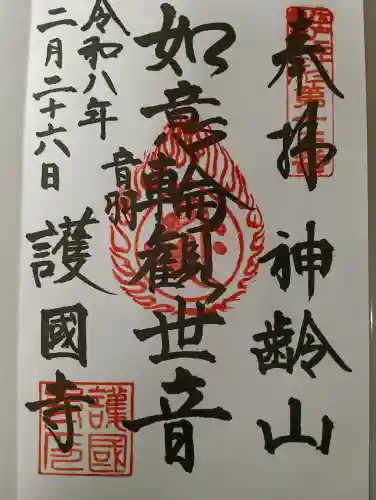 奉拝 神齢山
如意輪観世音
音羽
護國寺
令和八年
二月二十六日
護國